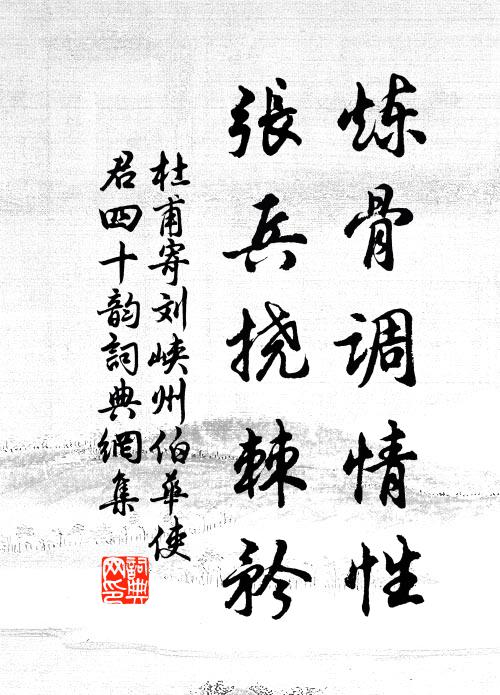 炼骨调情性
張兵挠棘矜
杜甫寄刘峡州伯華使
君四十韵詞典網集
詞典
网印